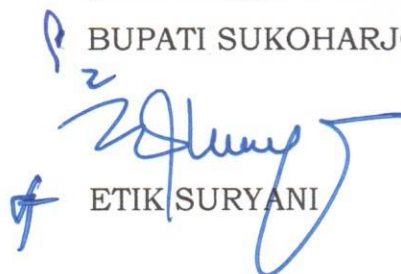 BUPATI SUKOHARJO
ETIK SURYANI